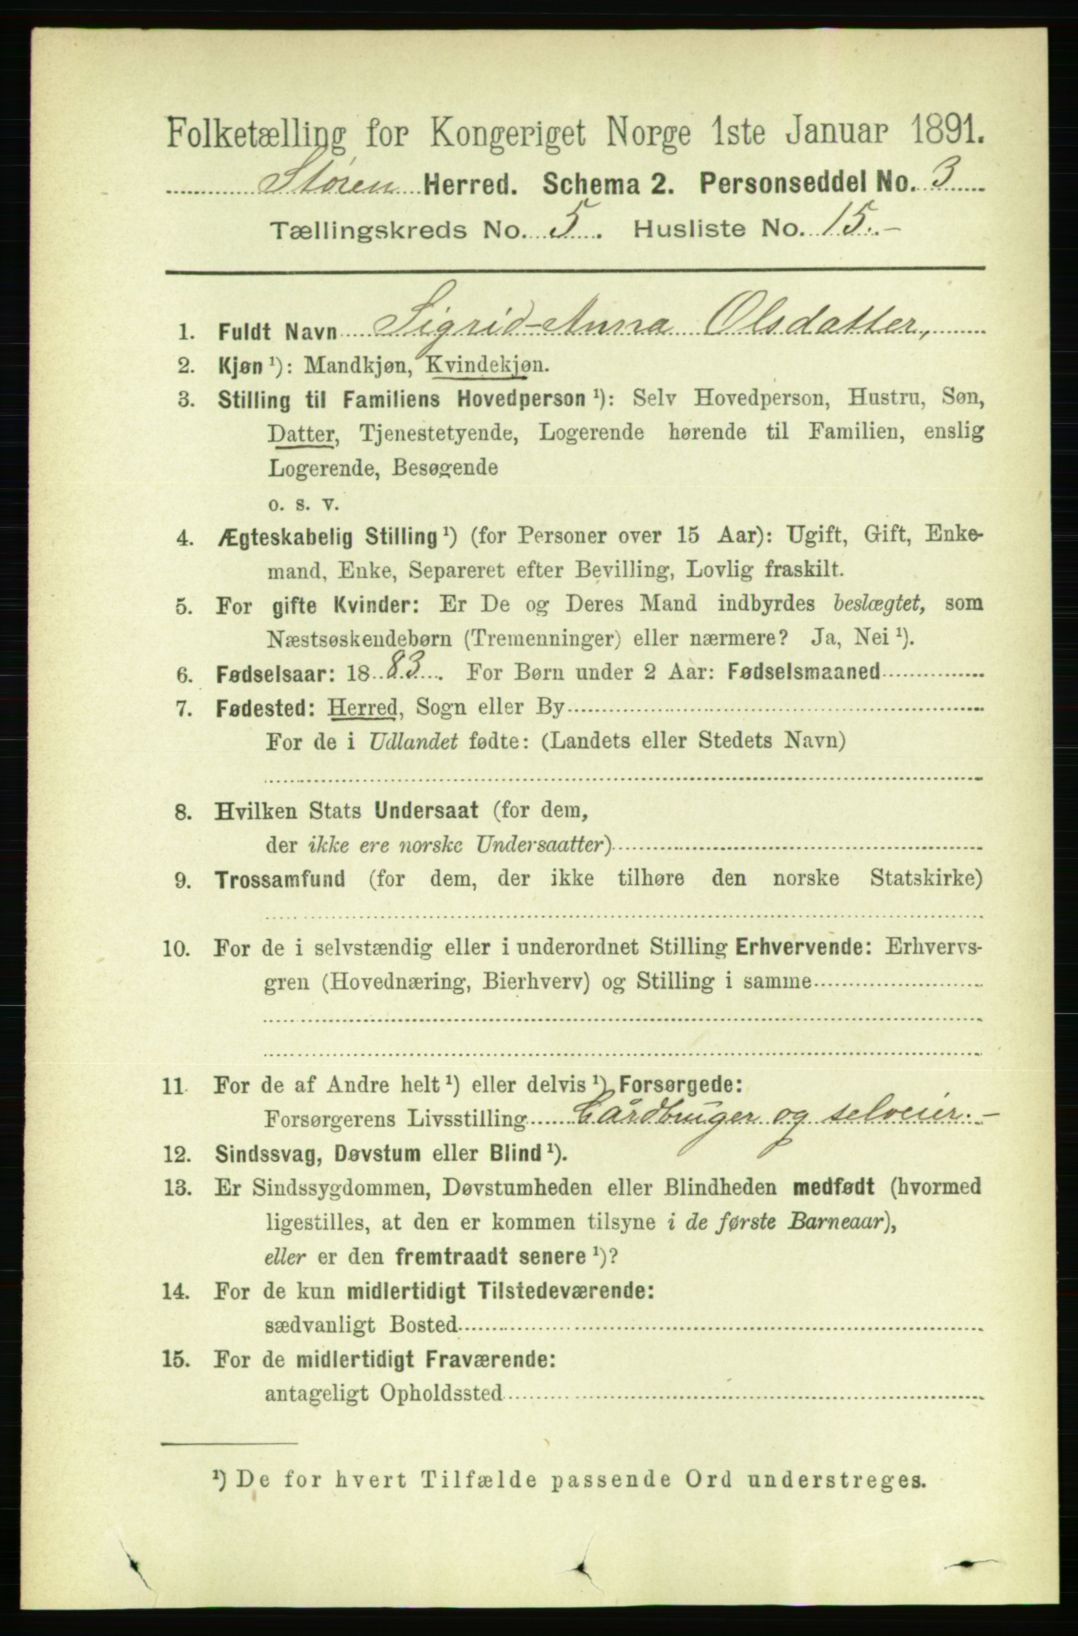 Folketælling for Kongeriget Norge 1ste Januar 1891.
Støren Herred. Schema 2. Personseddel No. 3
Tællingskreds No. 5. Husliste No. 15.-
1. Fuldt Navn Sigrid-Anna Olsdatter,
2. Kjøn ¹): Mandkjøn, Kvindekjøn.
3. Stilling til Familiens Hovedperson ¹): Selv Hovedperson, Hustru, Søn,
Datter, Tjenestetyende, Logerende hørende til Familien, enslig
Logerende, Besøgende
o. s. v.
4. Ægteskabelig Stilling ¹) (for Personer over 15 Aar): Ugift, Gift, Enke-
mand, Enke, Separeret efter Bevilling, Lovlig fraskilt.
5. For gifte Kvinder: Er De og Deres Mand indbyrdes beslægtet, som
Næstsøskendebørn (Tremenninger) eller nærmere? Ja, Nei ¹).
6. Fødselsaar: 1883. For Børn under 2 Aar: Fødselsmaaned
7. Fødested: Herred, Sogn eller By
For de i Udlandet fødte: (Landets eller Stedets Navn)
8. Hvilken Stats Undersaat (for dem,
der ikke ere norske Undersaatter)
9. Trossamfund (for dem, der ikke tilhøre den norske Statskirke)
10. For de i selvstændig eller i underordnet Stilling Erhvervende: Erhvervs-
gren (Hovednæring, Bierhverv) og Stilling i samme
11. For de af Andre helt ¹) eller delvis ¹) Forsørgede:
Forsørgerens Livsstilling Gårdbruger og selveier.-
12. Sindssvag, Døvstum eller Blind ¹).
13. Er Sindssygdommen, Døvstumheden eller Blindheden medfødt (hvormed
ligestilles, at den er kommen tilsyne i de første Barneaar),
eller er den fremtraadt senere ¹)?
14. For de kun midlertidigt Tilstedeværende:
sædvanligt Bosted
15. For de midlertidigt Fraværende:
antageligt Opholdssted
¹) De for hvert Tilfælde passende Ord understreges.